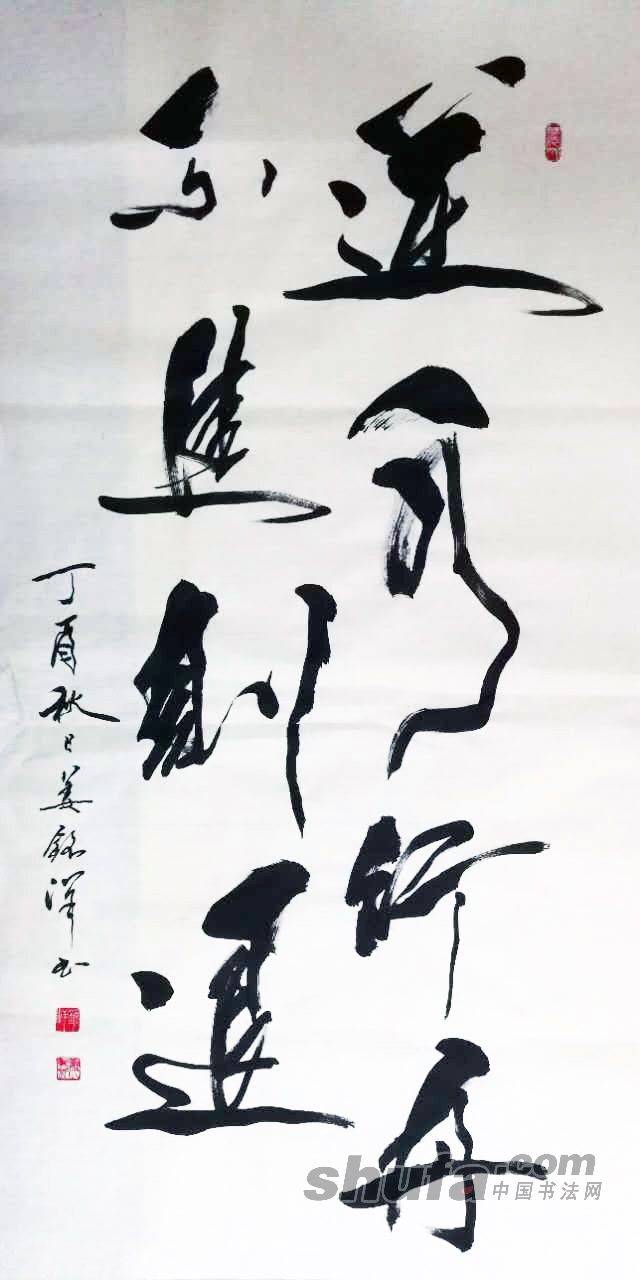 逆水行舟
不進則退
丁酉秋日姜銘洋书
shufa.com
中国书法网